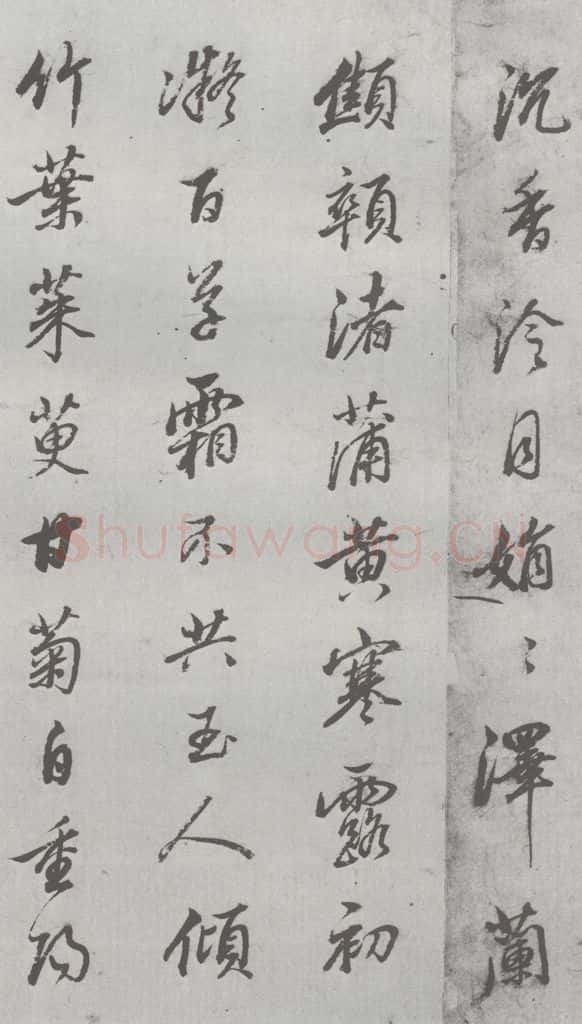 沉香冷月娟〻澤蘭
顦顇渚蒲黃寒露初
凝百草霜不共玉人傾
竹葉茱萸甘菊自重陽
Shufawang.CN